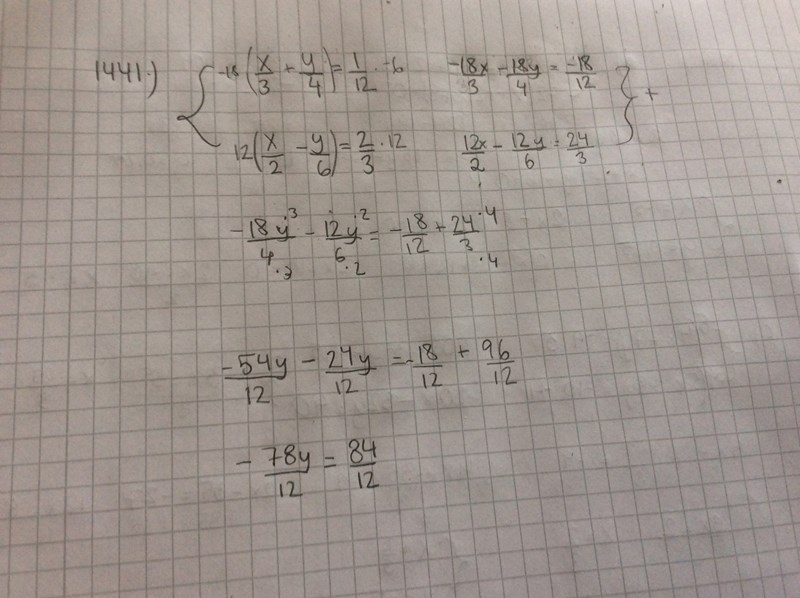 1441.) { -18(x/3 + y/4) = 1/12 · -6    -18x/3 - 18y/4 = -18/12 } +
12(x/2 - y/6) = 2/3 · 12    12x/2 - 12y/6 = 24/3
-18y·3/4·3 - 12y·2/6·2 = -18/12 + 24·4/3·4
-54y/12 - 24y/12 = -18/12 + 96/12
-78y/12 = 84/12